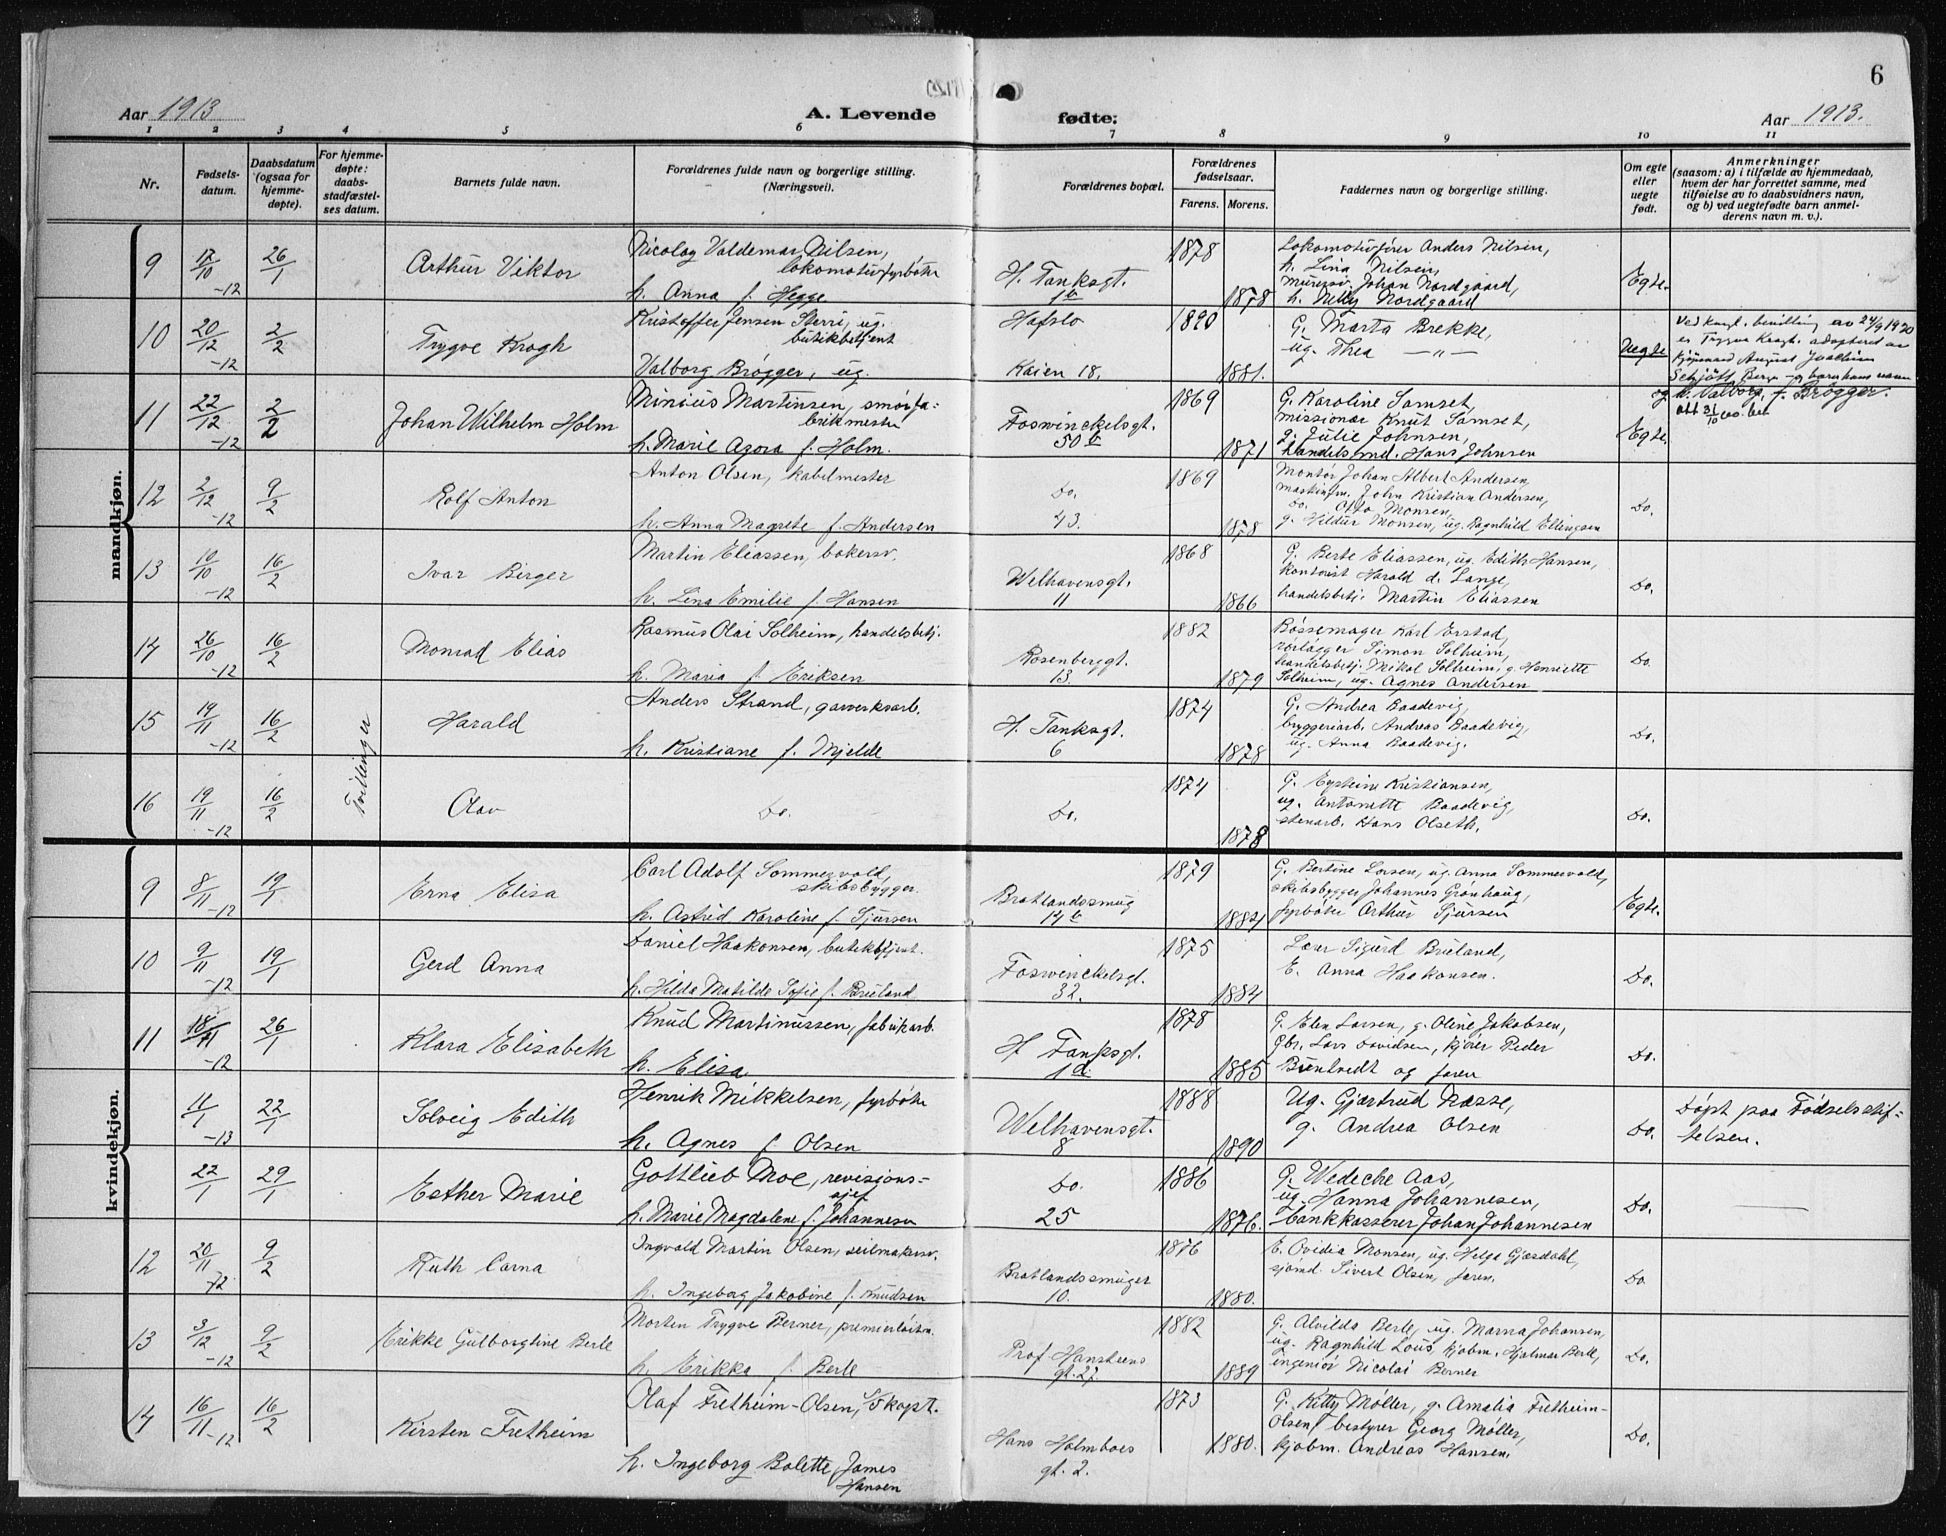 6
Aar 1913
A. Levende
fødte.
Aar 1913.
1 2 3 4 5 6 7 8 9 10 11
Nr.
Fødsels-
datum.
Daabsdatum
(ogsaa for
hjemme-
døpte).
For hjemme-
døpte:
daabs-
stadfæstel-
ses datum.
Barnets fulde navn.
Forældrenes fulde navn og borgerlige stilling.
(Næringsvei).
Forældrenes bopæl.
Forældrenes
fødselsaar.
Farens. Morens.
Faddernes navn og borgerlige stilling.
Om egte
eller
uegte
født.
Anmerkninger
(saasom: a) i tilfælde av hjemmedaab,
hvem der har forrettet samme, med
tilføielse av to daabsvidners navn,
og b) ved uegtefødte barn anmel-
derens navn m. v.).
mandkjøn.
9 12/10 -12 26/1 Arthur Viktor
Nicolay Valdemar Nilsen,
lokomotivfyrbøter
h. Anna f. Hegge
H. Tanksgt.
1b
1878 1878
Lokomotivfører Anders Nilsen,
h. Lina Nilsen,
murersv. Johan Nordgaard,
h. Nelly Nordgaard
Egte.
10 20/12 -12 2/2 Trygve Krogh
Kristoffer Jensen Sterri, ug.
butikbetjent
Valborg Brøgger, ug.
Hafslo
Kaien 18.
1890 1881.
G. Marta Brekke,
ug. Thea — „ —
Uegte
Ved kngl. bevilling av 24/9 1920
er Trygve Krogh adoptered av
kjøpmand August Joachim
Schjött Berge og barer hans navn
og h. Valborg f. Brøgger.
11 22/12 -12 2/2 Johan Wilhelm Holm
Minius Martinsen, smørfa-
brikmester
h. Marie Agora f. Holm.
Foswinckelsgt.
50b
1869 1871
G. Karoline Samset,
missionær Knut Samset,
g. Julie Johnsen,
handelsmd. Hans Johnsen
Egte.
12 2/12 -12 9/2 Rolf Anton
Anton Olsen, kabelmester
h. Anna Magrete f. Andersen
Do.
43.
1869 1878
Montør Johan Albert Andersen,
maskinm. John Kristian Andersen,
Do. Otto Monsen,
g. Hildur Monsen, ug. Ragnhild Ellingsen
Do.
13 10/10 -12 16/2 Ivar Birger
Martin Eliassen, bokersv.
h. Lina Emilie f. Hansen
Welhavensgt.
11
1868 1866
G. Berte Eliassen, ug. Edith Hansen,
kontorist Harald d. Lange,
handelsbetj. Martin Eliassen
Do.
14 26/10 -12 16/2 Monrad Elias
Rasmus Olai Solheim, handelsbetj.
h. Maria f. Eriksen
Rosenberggt.
13.
1882 1879
Bøssemager Karl Erstad,
rørlægger Simon Solheim,
handelsbetj. Mikal Solheim, g. Henriette
Solheim, ug. Agnes Andersen
Do.
Tvillinger
15 19/11 -12 16/2 Harald
Anders Strand, gasverksarb.
h. Kristiane f. Mjelde
H. Tanksgt.
6
1874 1878
G. Andrea Baadevig,
bryggeriarb. Andreas Baadevig,
ug. Anna Baadevig.
Do.
16 19/11 -12 16/2 Olav
Do.
Do.
1874 1878
G. Eystein Kristiansen,
ug. Antonette Baadevig,
stenarb. Hans Olseth.
Do.
kvindekjøn.
9 8/11 -12 19/1 Erna Elisa
Carl Adolf Sommervold,
skibsbygger.
h. Astrid Karoline f. Sjursen
Bratlandssmug
14b
1879 1884
G. Bertine Larsen, ug. Anna Sommervold,
skibsbygger Johannes Grønhaug,
fyrbøter Arthur Sjursen
Egte.
10 9/11 -12 19/1 Gerd Anna
Daniel Haakonsen, butikbtjent.
h. Hilda Matilde Sofie f. Brieland
Foswinckelsgt.
32.
1875 1884
Lærer Sigurd Brieland,
E. Anna Haakonsen.
Do.
11 18/11 -12 26/1 Klara Elisabeth
Knud Martinussen, fabrikarb.
h. Elisa
H. Tanksgt.
1d
1878 1885
G. Elen Larsen, g. Oline Jakobsen,
Gbr. Lars Davidsen, kjører Peder
og faren
Do.
11/1 -13 22/1 Solveig Edith
Henrik Mikkelsen, fyrbøter
h. Agnes f. Olsen
Welhavensgt.
8
1888 1890
Ug. Gjærtrud Næsse,
g. Andrea Olsen
Do.
Døpt paa Fødselsstif-
telsen.
22/1 29/1 Esther Marie
Gottlieb Moe, revisjons-
sjef
h. Marie Magdalene f. Johannesen
Do.
25
1886 1876.
G. Wedeche Aas,
ug. Hanna Johannesen,
bankkasserer Johan Johannesen
Do.
12 20/11 -12 9/2 Ruth Carna
Ingvald Martin Olsen, seilmakersv.
h. Ingeborg Jakobine f. Knudsen
Bratlandssmuget
10.
1876 1880.
E. Ovidia Monsen, ug. Helga Gjæsdahl,
sjømd. Sivert Olsen, faren.
Do
13 3/12 -12 9/2 Erikke Gulborgtine Berle
Morten Trygve Berner, premierløitn.
h. Erikka f. Berle
Prof. Hansteens
gt. 27
1882 1889
G. Alvilda Berle, ug. Marna Johansen,
ug. Ragnhild Lous, kjøbm. Hjalmar Berle,
ingeniør Nicolai Berner
Do.
14 16/11 -12 16/2 Kirsten Fretheim
Olaf Fretheim-Olsen, s/skapt.
h. Ingeborg Bolette James
Hansen
Hans Holmboes
gt. 2.
1873 1880.
G. Kitty Møller, g. Amalia Fretheim-
Olsen, bestyrer Georg Møller,
kjøbm. Andreas Hansen.
Do.